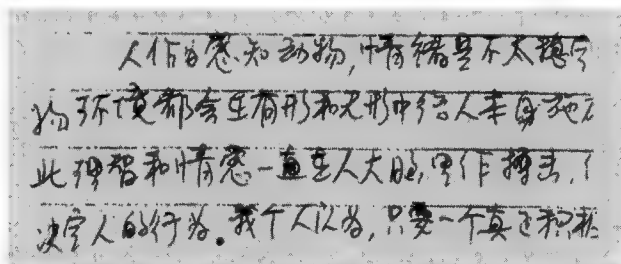 人作为感知动物,情绪是不太稳定
物环境都会在有形和无形中给人本身施加
此理智和情感一直在人大脑里作搏击,
决定人的行为。我个人认为,只要一个真正积极